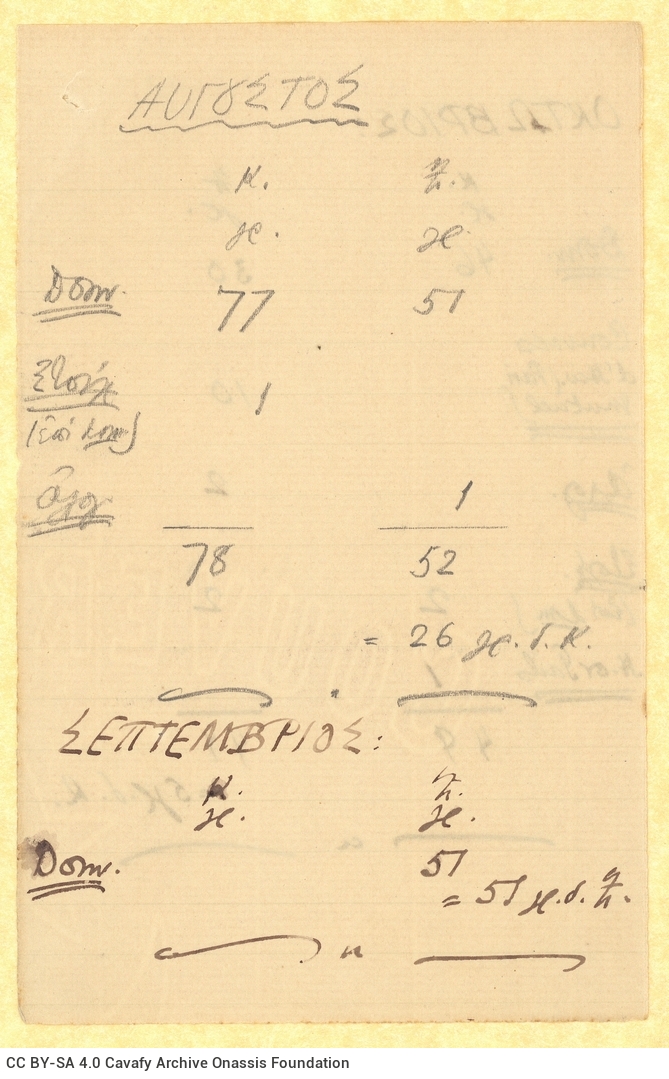 ΑΥΓΟΥΣΤΟΣ
κ. π.
χ. χ
Dom. 77 51
1
1
78 52
= 26 χ. δ. κ.
"
ΣΕΠΤΕΜΒΡΙΟΣ:
κ. π.
χ. χ.
Dom. 51
= 51 χ. δ. π.
"
CC BY-SA 4.0 Cavafy Archive Onassis Foundation